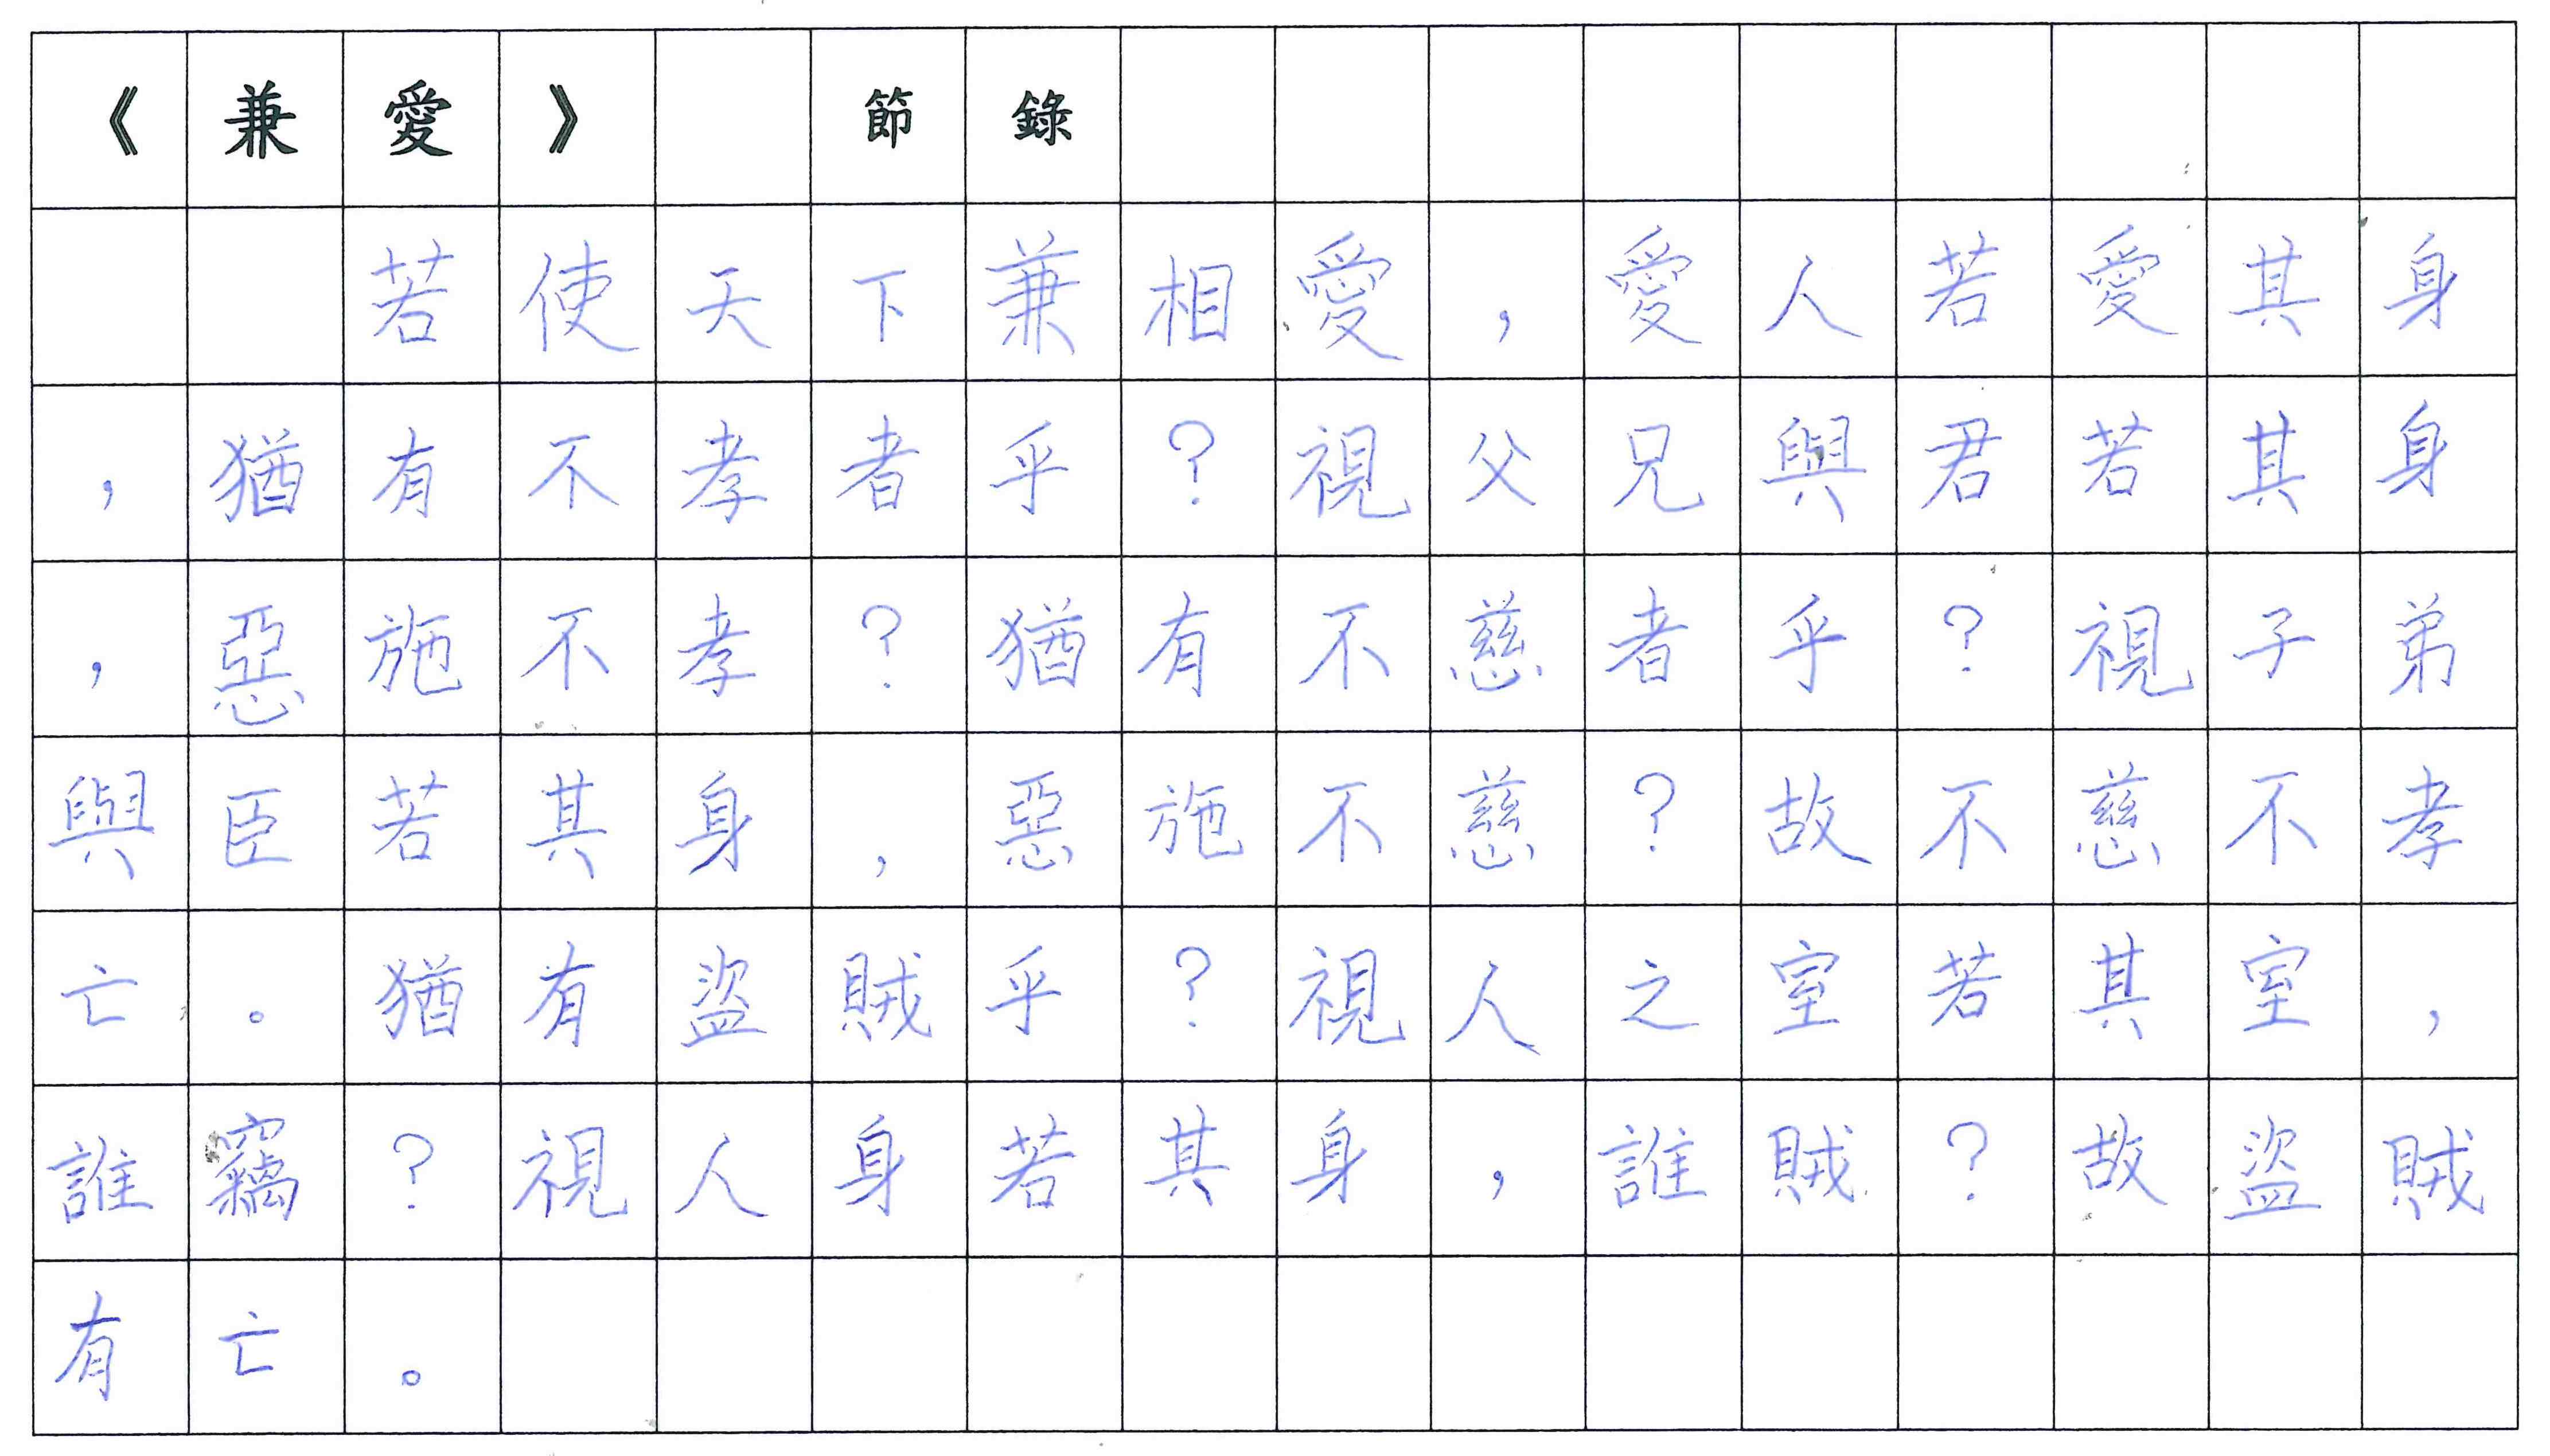 《兼愛》 節錄
若使天下兼相愛，愛人若愛其身
，猶有不孝者乎？視父兄與君若其身
，惡施不孝？猶有不慈者乎？視子弟
與臣若其身，惡施不慈？故不慈不孝
亡。猶有盜賊乎？視人之室若其室，
誰竊？視人身若其身，誰賊？故盜賊
有亡。